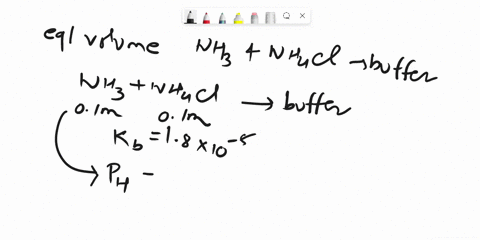 eql volume NH3 + NH4Cl → buffer
NH3 + NH4Cl → buffer
0.1m 0.1m
Kb = 1.8 × 10^-5
→ PH -